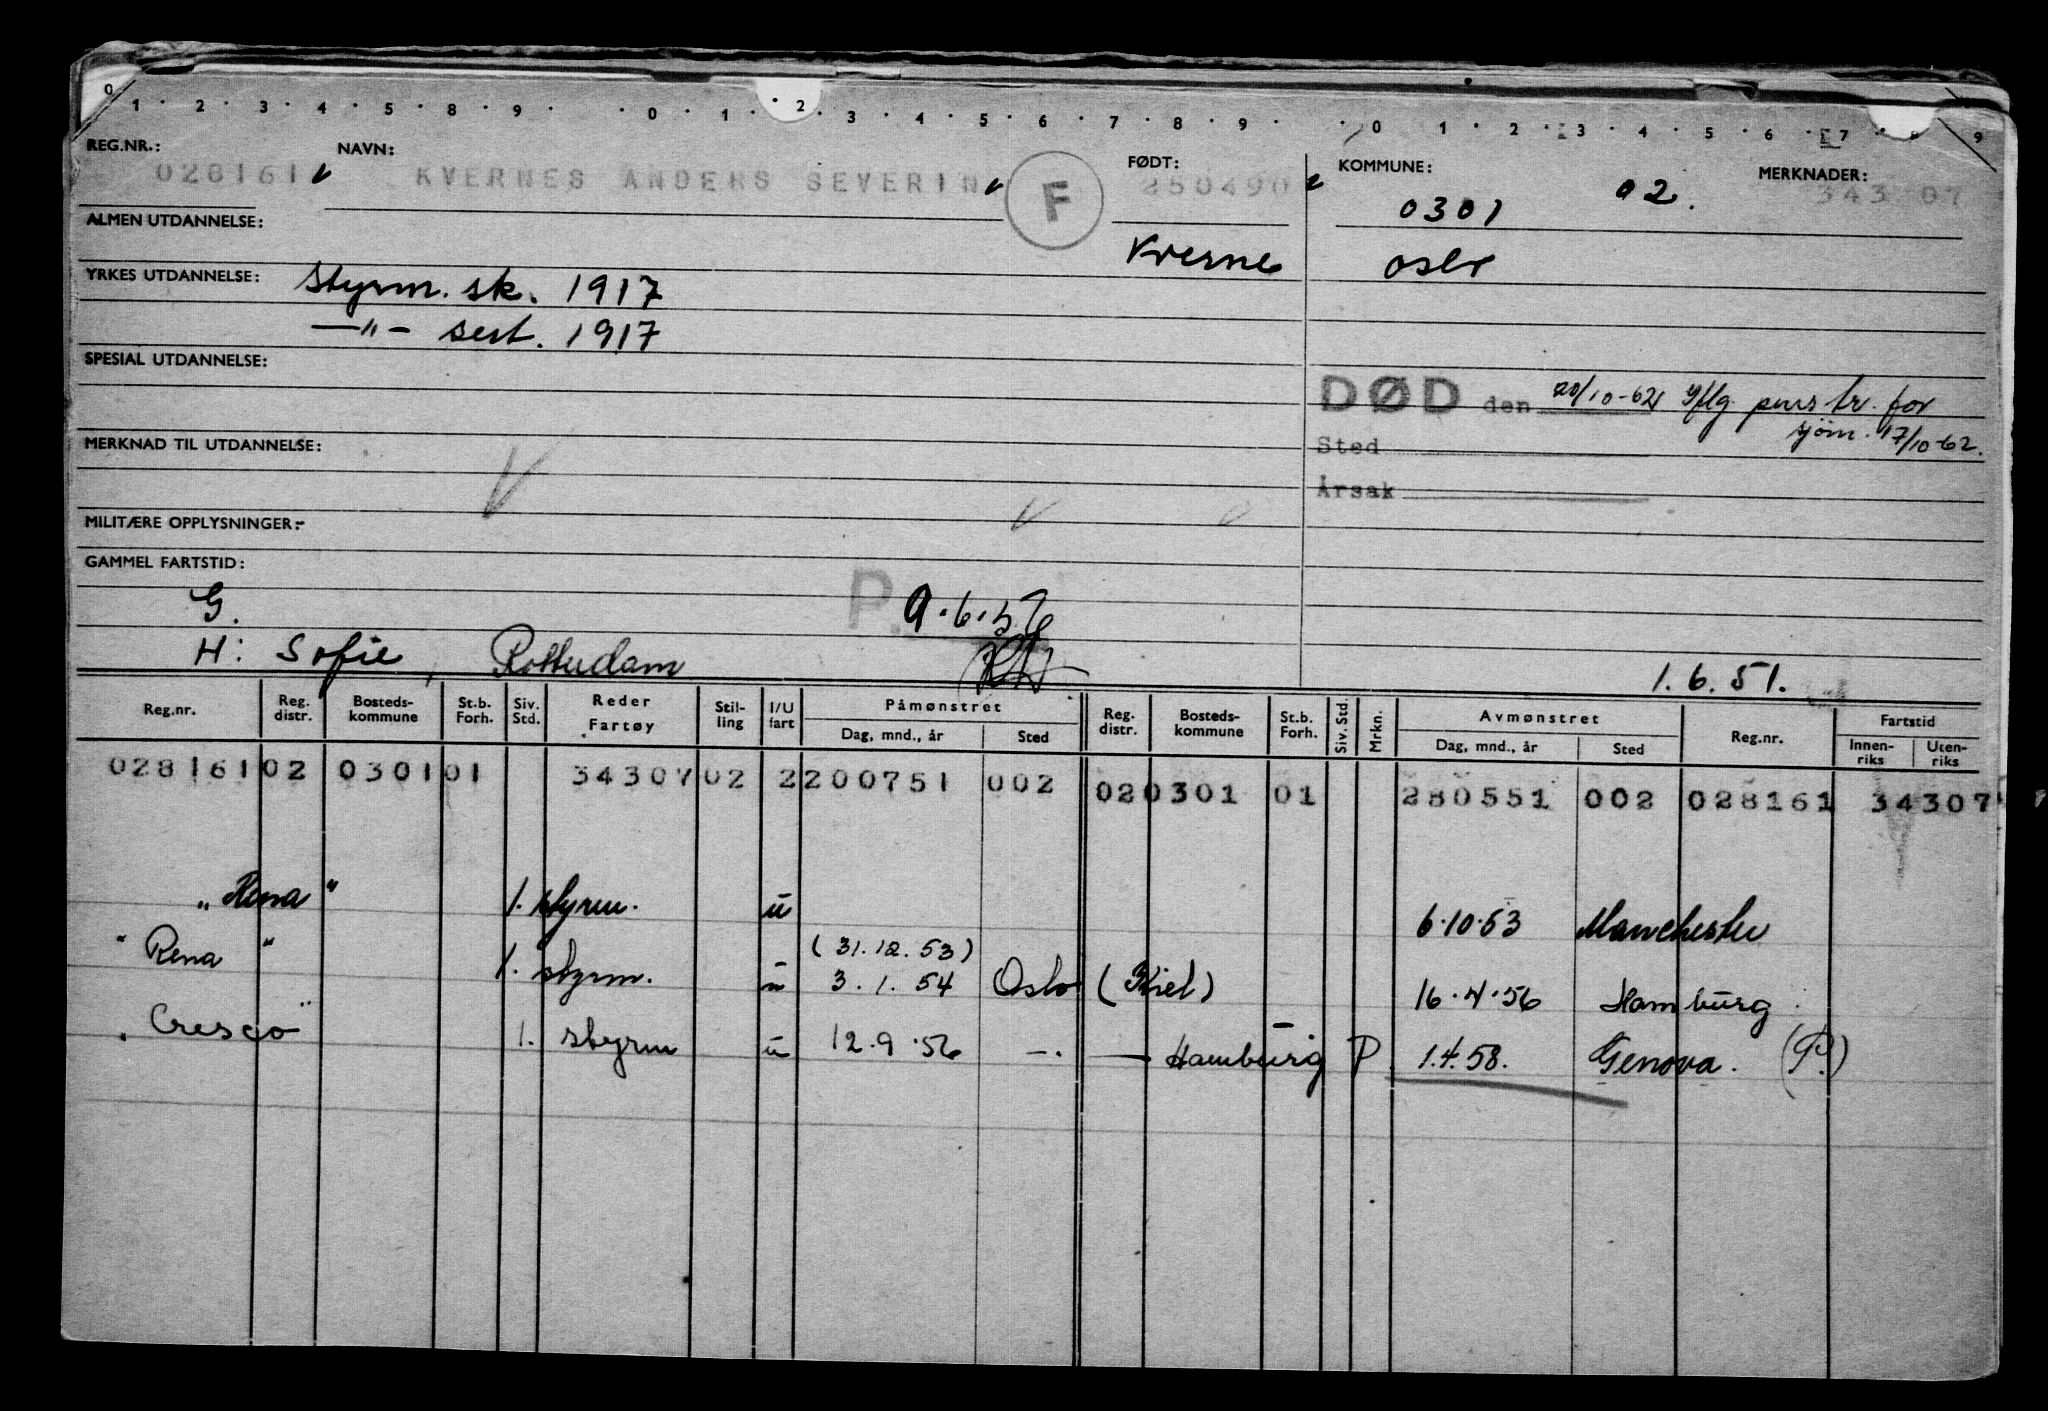 0 1 2 3 4 5 8 9 0 1 2 3 4 5 6 7 8 9 0 1 2 3 4 5 6 7 8 9
REG.NR.: NAVN: FØDT: KOMMUNE: MERKNADER:
028161 KVERNES ANDERS SEVERIN F 250490 0301 02. 343 07
ALMEN UTDANNELSE: Kverne Oslo
YRKES UTDANNELSE: Styrm. sk. 1917
—"— sert. 1917
SPESIAL UTDANNELSE:
DØD den /10-62 iflg. pens tr. for
sjøm. 17/10-62.
MERKNAD TIL UTDANNELSE: Sted
Årsak
MILITÆRE OPPLYSNINGER:
GAMMEL FARTSTID:
G. P. 9.6.56
H: Sofie, Rotterdam 1.6.51.
Reg.nr. Reg. distr. Bosteds-kommune St.b. Forh. Siv. Std. Reder Fartøy Stil-ling I/U fart Påmønstret Dag, mnd., år Sted Reg. distr. Bosteds-kommune St.b. Forh. Siv. Std. Mrkn. Avmønstret Dag, mnd., år Sted Reg.nr. Fartstid Innen-riks Uten-riks
028161 02 0301 01 34307 02 2 200751 002 02 0301 01 280551 002 028161 34307
"Rena" 1. styrm. u 6.10.53 Manchester
(31.12.53)
"Rena" 1. styrm. u 3.1.54 Oslo (Kiel) 16.4.56 Hamburg
"Cresco" 1. styrm u 12.9.56 —.— Hamburg P 1.4.58. Genova. (P.)